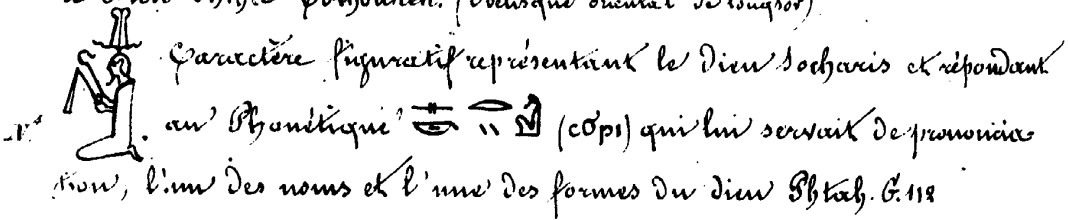 (obélisque oriental de Lougsor)
Caractère figuratif représentant le dieu Socharis et répondant
au Phonétique (ⲥϭⲣⲓ) qui lui servait de prononcia-
tion, l'un des noms et l'une des formes du dieu Phtah. G. 112